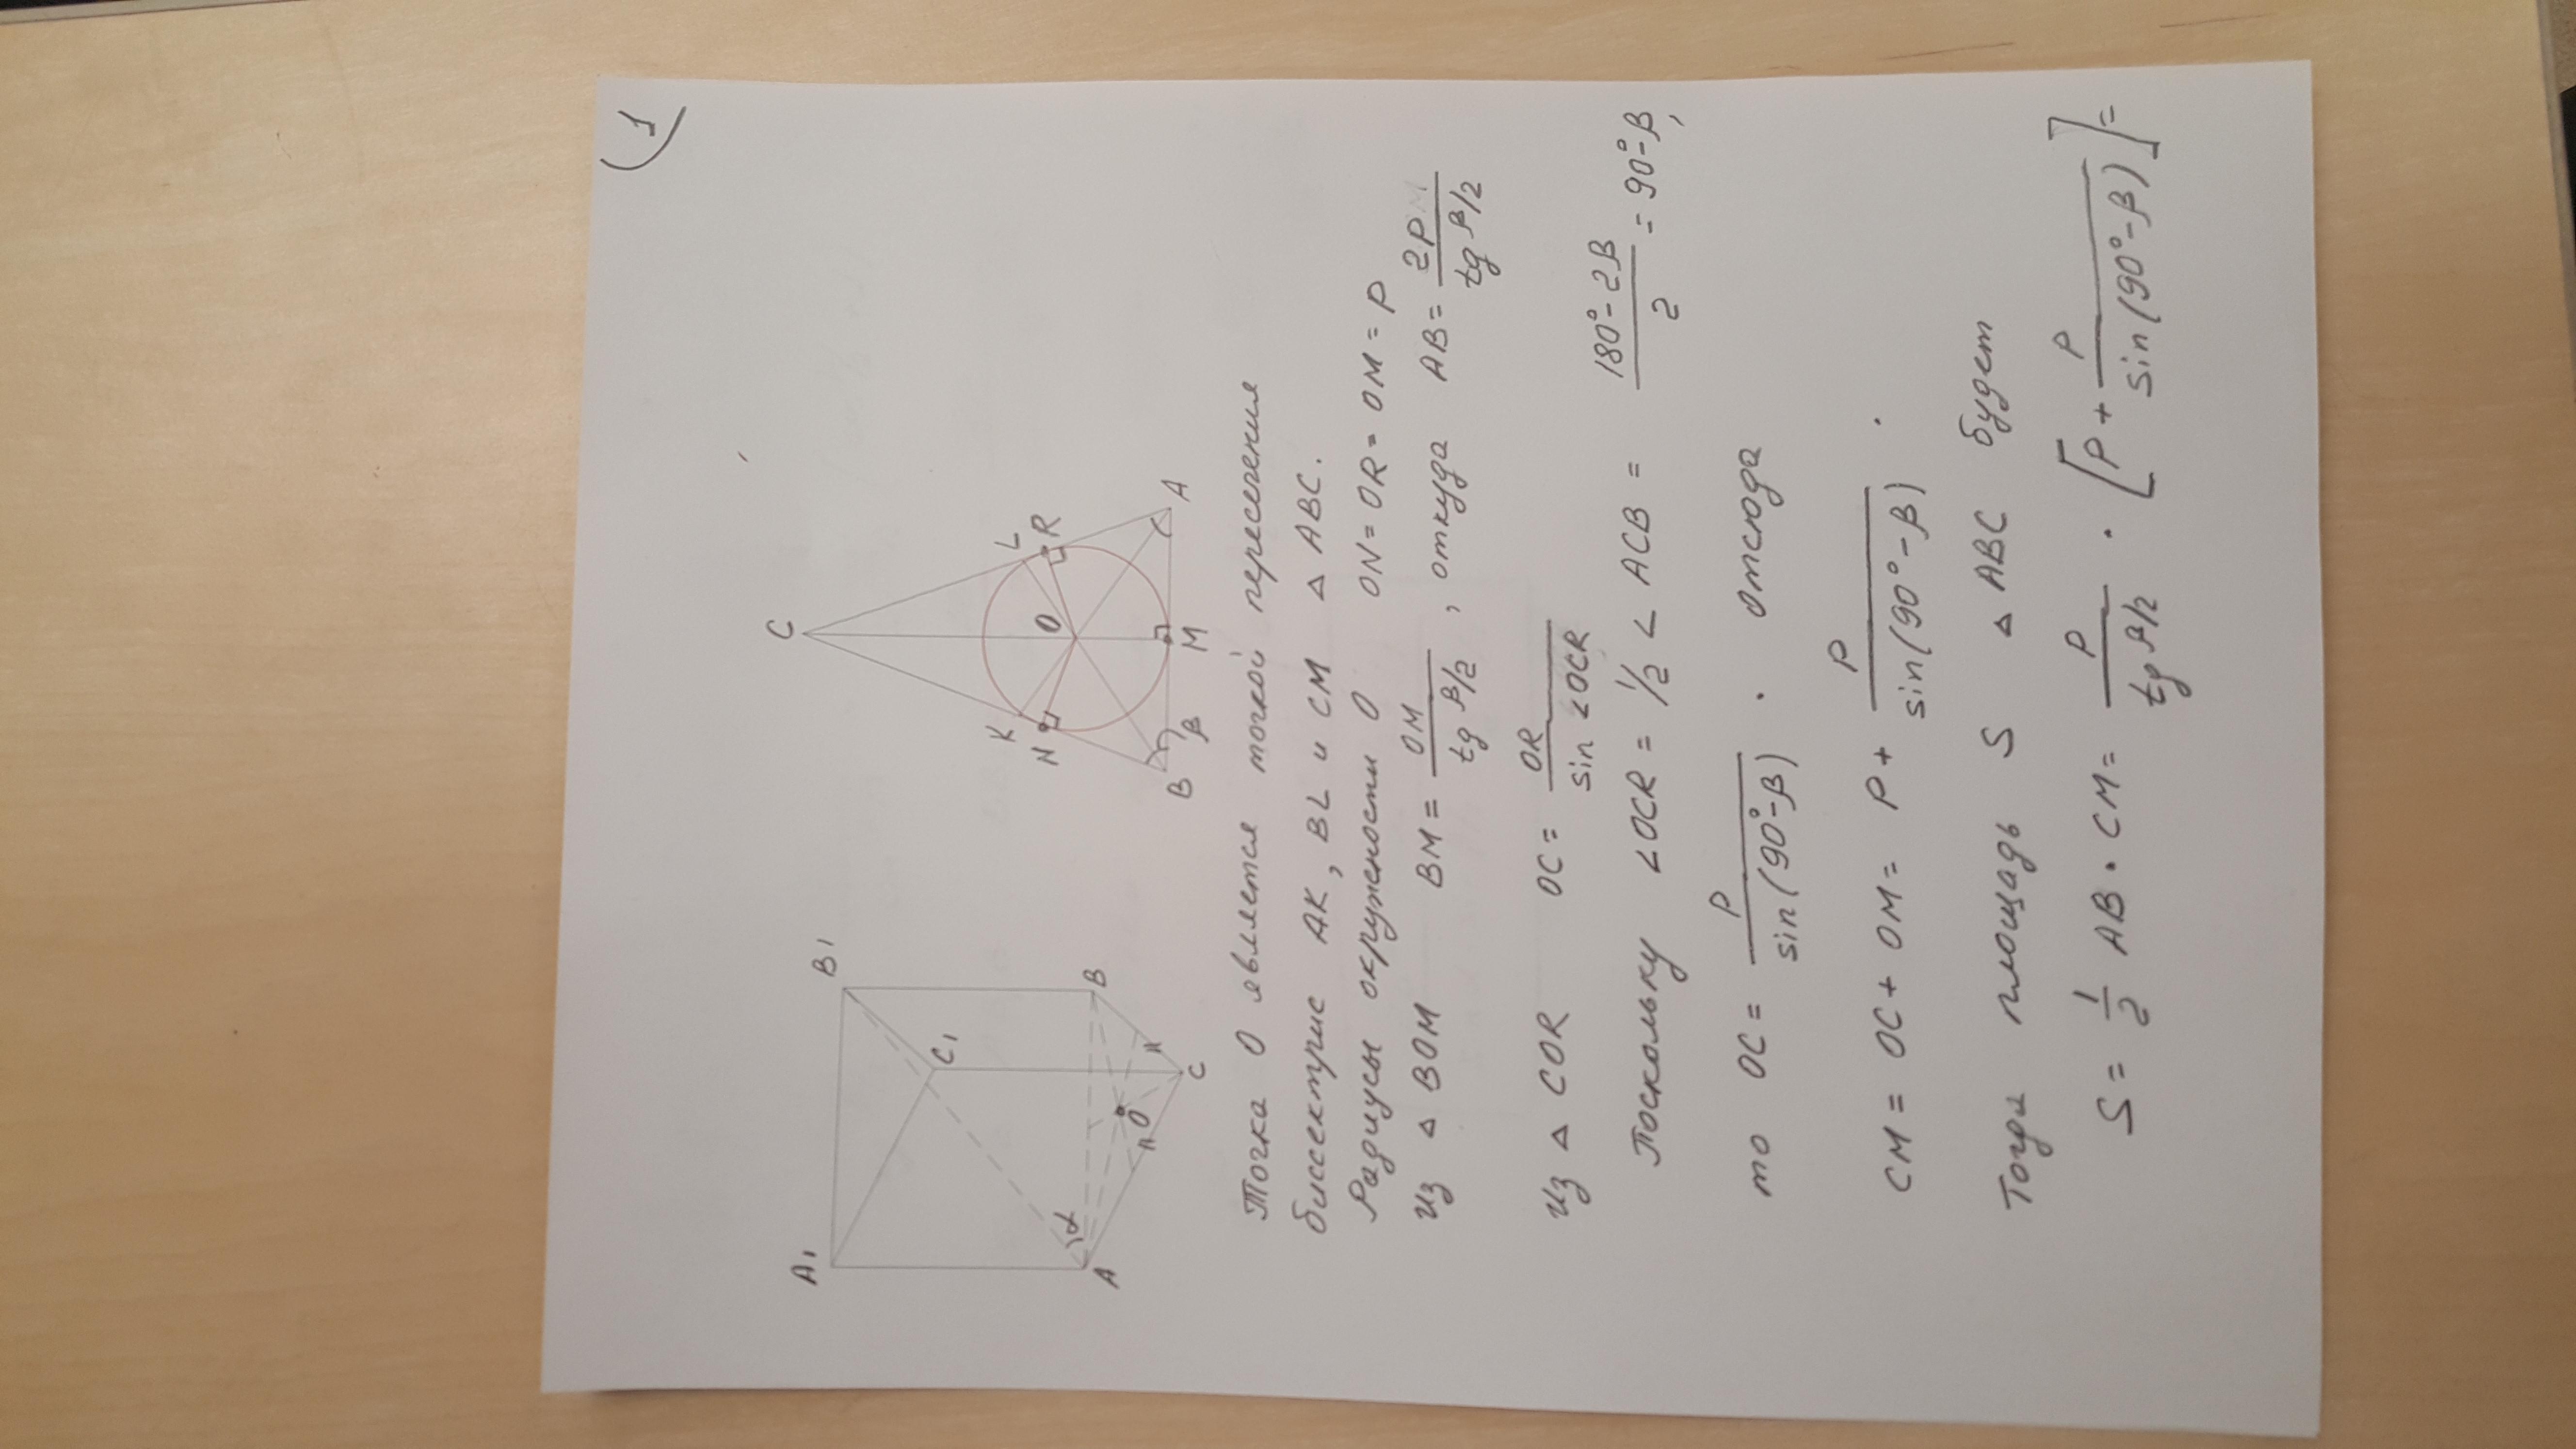 1)
A1 B1 C1 A B C O H H α
C K L N R O B M A β
Точка O является точкой пересечения
биссектрис AK, BL и CM △ ABC.
Радиусы окружности O ON = OR = OM = P
Из △ BOM BM = OM / tg β/2, откуда AB = 2P / tg β/2
Из △ COR OC = OR / sin ∠OCR
Поскольку ∠OCR = 1/2 ∠ ACB = (180° - 2β) / 2 = 90° - β,
то OC = P / sin(90° - β). Отсюда
CM = OC + OM = P + P / sin(90° - β).
Тогда площадь S △ ABC будет
S = 1/2 AB · CM = P / tg β/2 · [P + P / sin(90° - β)] =